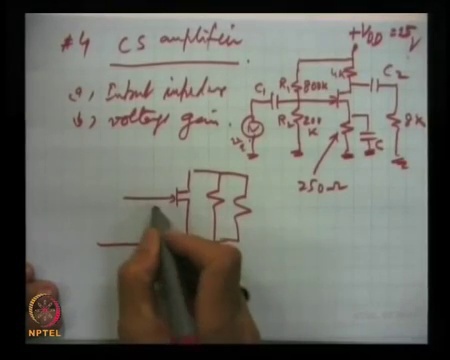 #4 CS amplifier
a, Input impedance
b, voltage gain.
+VDD = 25V
4K
C2
R1 800K
C1
R2 200K
8K
C
250Ω
NPTEL